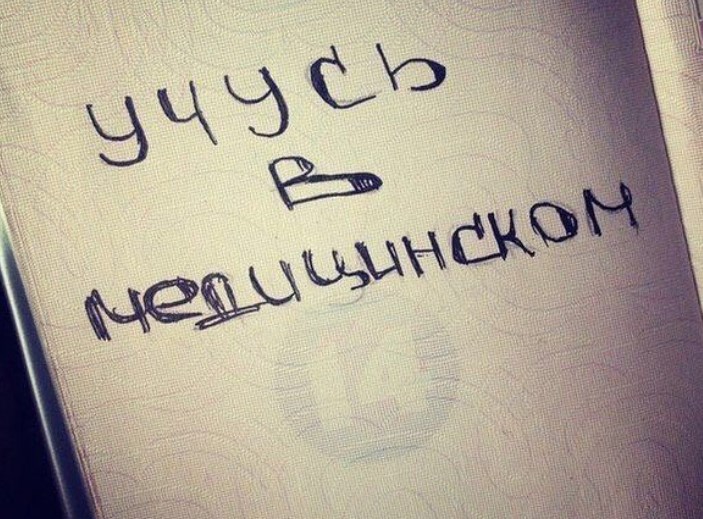 учусь
в
медицинском
14